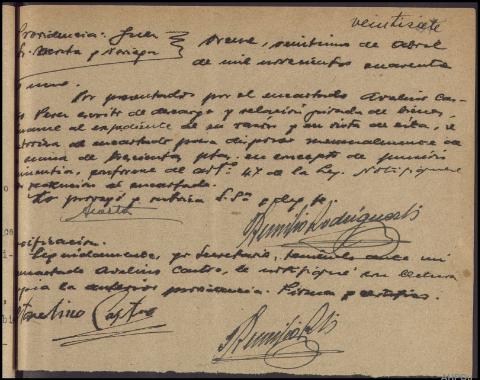 veintisiete
Providencia: Juez
Sr. Acosta y Noriega
Orense, veintiuno de Abril
de mil novecientos cuarenta
y uno.
Por presentados por el encartado Avelino Cas-
Perez escrito de descargo y relación jurada de bienes,
al expediente de su razón y en vista de ésta, se
al encartado para disponer mensualmente de
suma de trescientas ptas. en concepto de pensión
alimenticia, conforme de artº. 47 de la Ley. Notifíquese
resolución al encartado.
Lo proveyó y rubrica S.Sª doy fe.
Acosta
Remilio Rodríguez
Notificación.
Seguidamente, yo Secretario, teniendo ante mi
encartado Avelino Castro, le notifiqué con lectura
copia la anterior providencia. Firma y certifico.
Avelino Castro